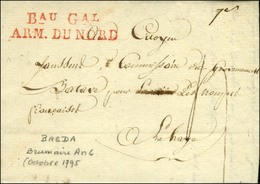 BAU GAL
ARM. DU NORD
Citoyen
Commissaire du gouvernement
Batave pour les troupes
françaises
a La haye
BREDA
Brumaire An 6
(Octobre 1795